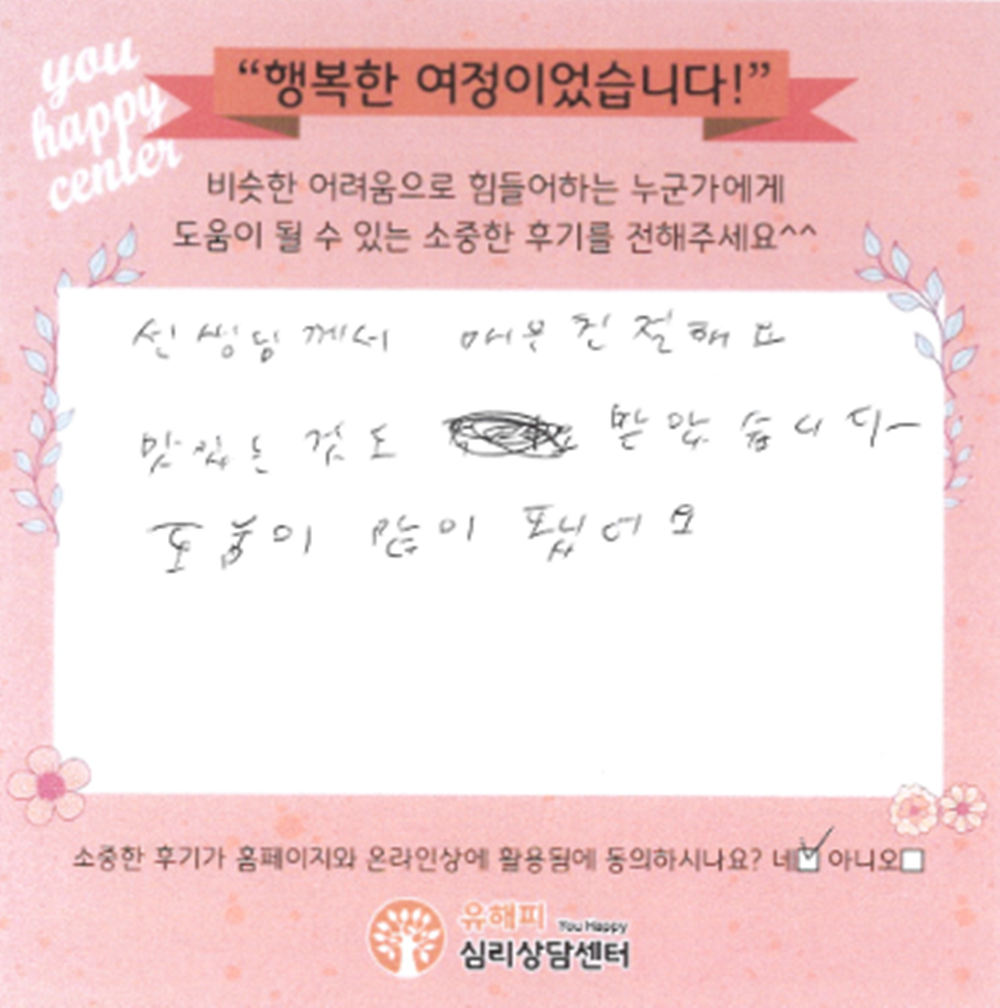 you
happy
center
“행복한 여정이었습니다!”
비슷한 어려움으로 힘들어하는 누군가에게
도움이 될 수 있는 소중한 후기를 전해주세요^^
선생님께서 매우 친절해요
맛있는 것도 받았습니다
도움이 많이 됬어요
소중한 후기가 홈페이지와 온라인상에 활용됨에 동의하시나요? 네 아니오
유해피 You Happy
심리상담센터